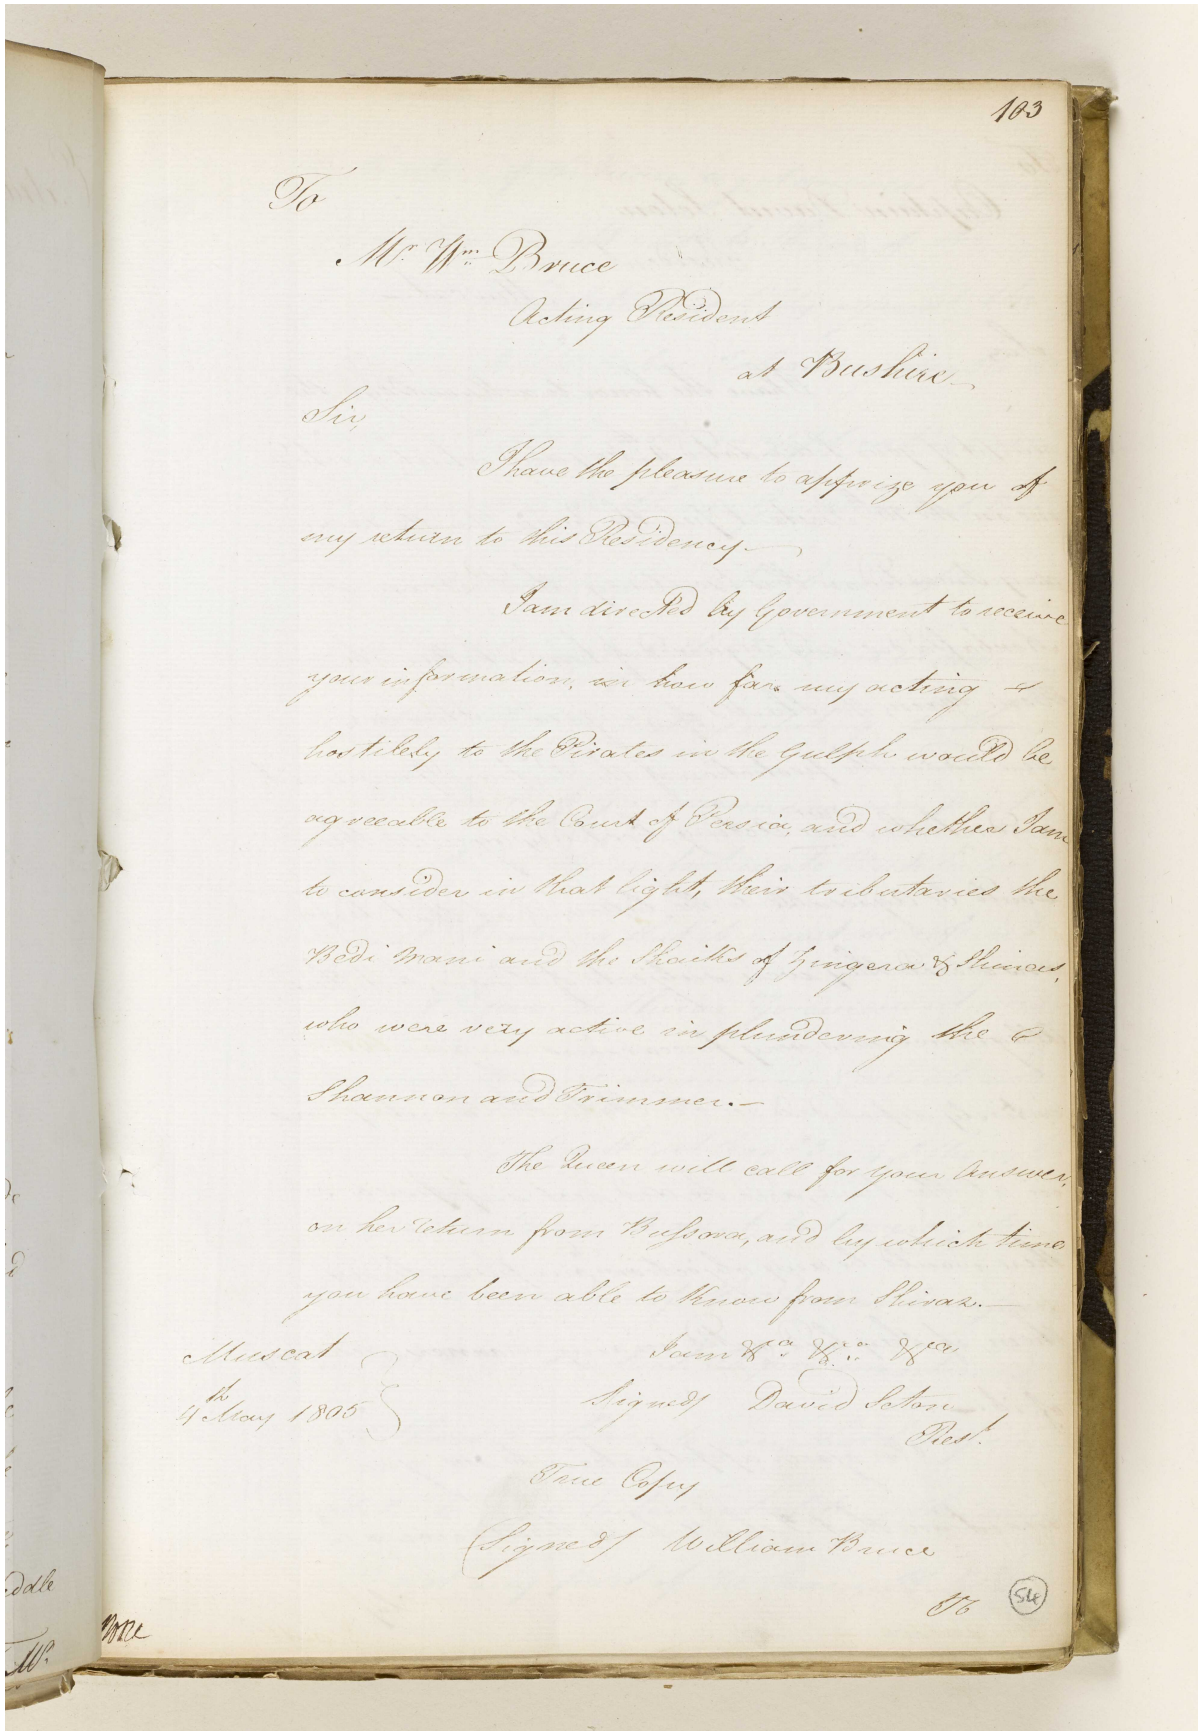 103
To
Mr. Wm. Bruce
Acting Resident
at Bushire
Sir,
I have the pleasure to apprize you of
my return to this Residency
I am directed by Government to receive
your information, in how far my acting
hostilely to the Pirates in the Gulph would be
agreeable to the Court of Persia, and whether I am
to consider in that light, their tributaries the
Beni Mani and the Shaiks of Lingera & Shinas,
who were very active in plundering the
Shannon and Trimmer.
The Queen will call for your Answer,
on her return from Bussora, and by which time
you have been able to know from Shiraz.
Muscat
4th May 1805
I am &ca. &ca. &ca
Signed/ David Seton
Rest.
True Copy
(Signed/ William Bruce
To
54
ddle
Mr.